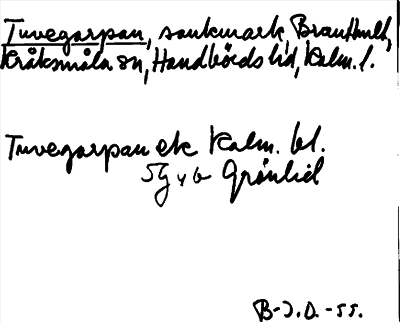 Tuvegarpan, sankmark, Branthult,
Kråksmåla sn, Handbörds hd, Kalm. l.
Tuvegarpan ek Kalm. bl.
5G Grönlid
B-J.D.-55.